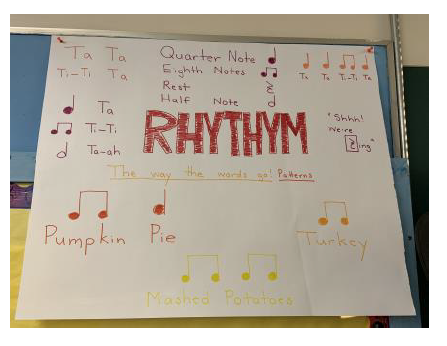 Ta Ta
Ti-Ti Ta
Quarter Note
Eighth Notes
Rest
Half Note
Ta Ta Ti-Ti Ta
Ta
Ti-Ti
Ta-ah
RHYTHYM
"Shhh!
We're
ing"
The way the words go! Patterns
Pumpkin Pie
Turkey
Mashed Potatoes